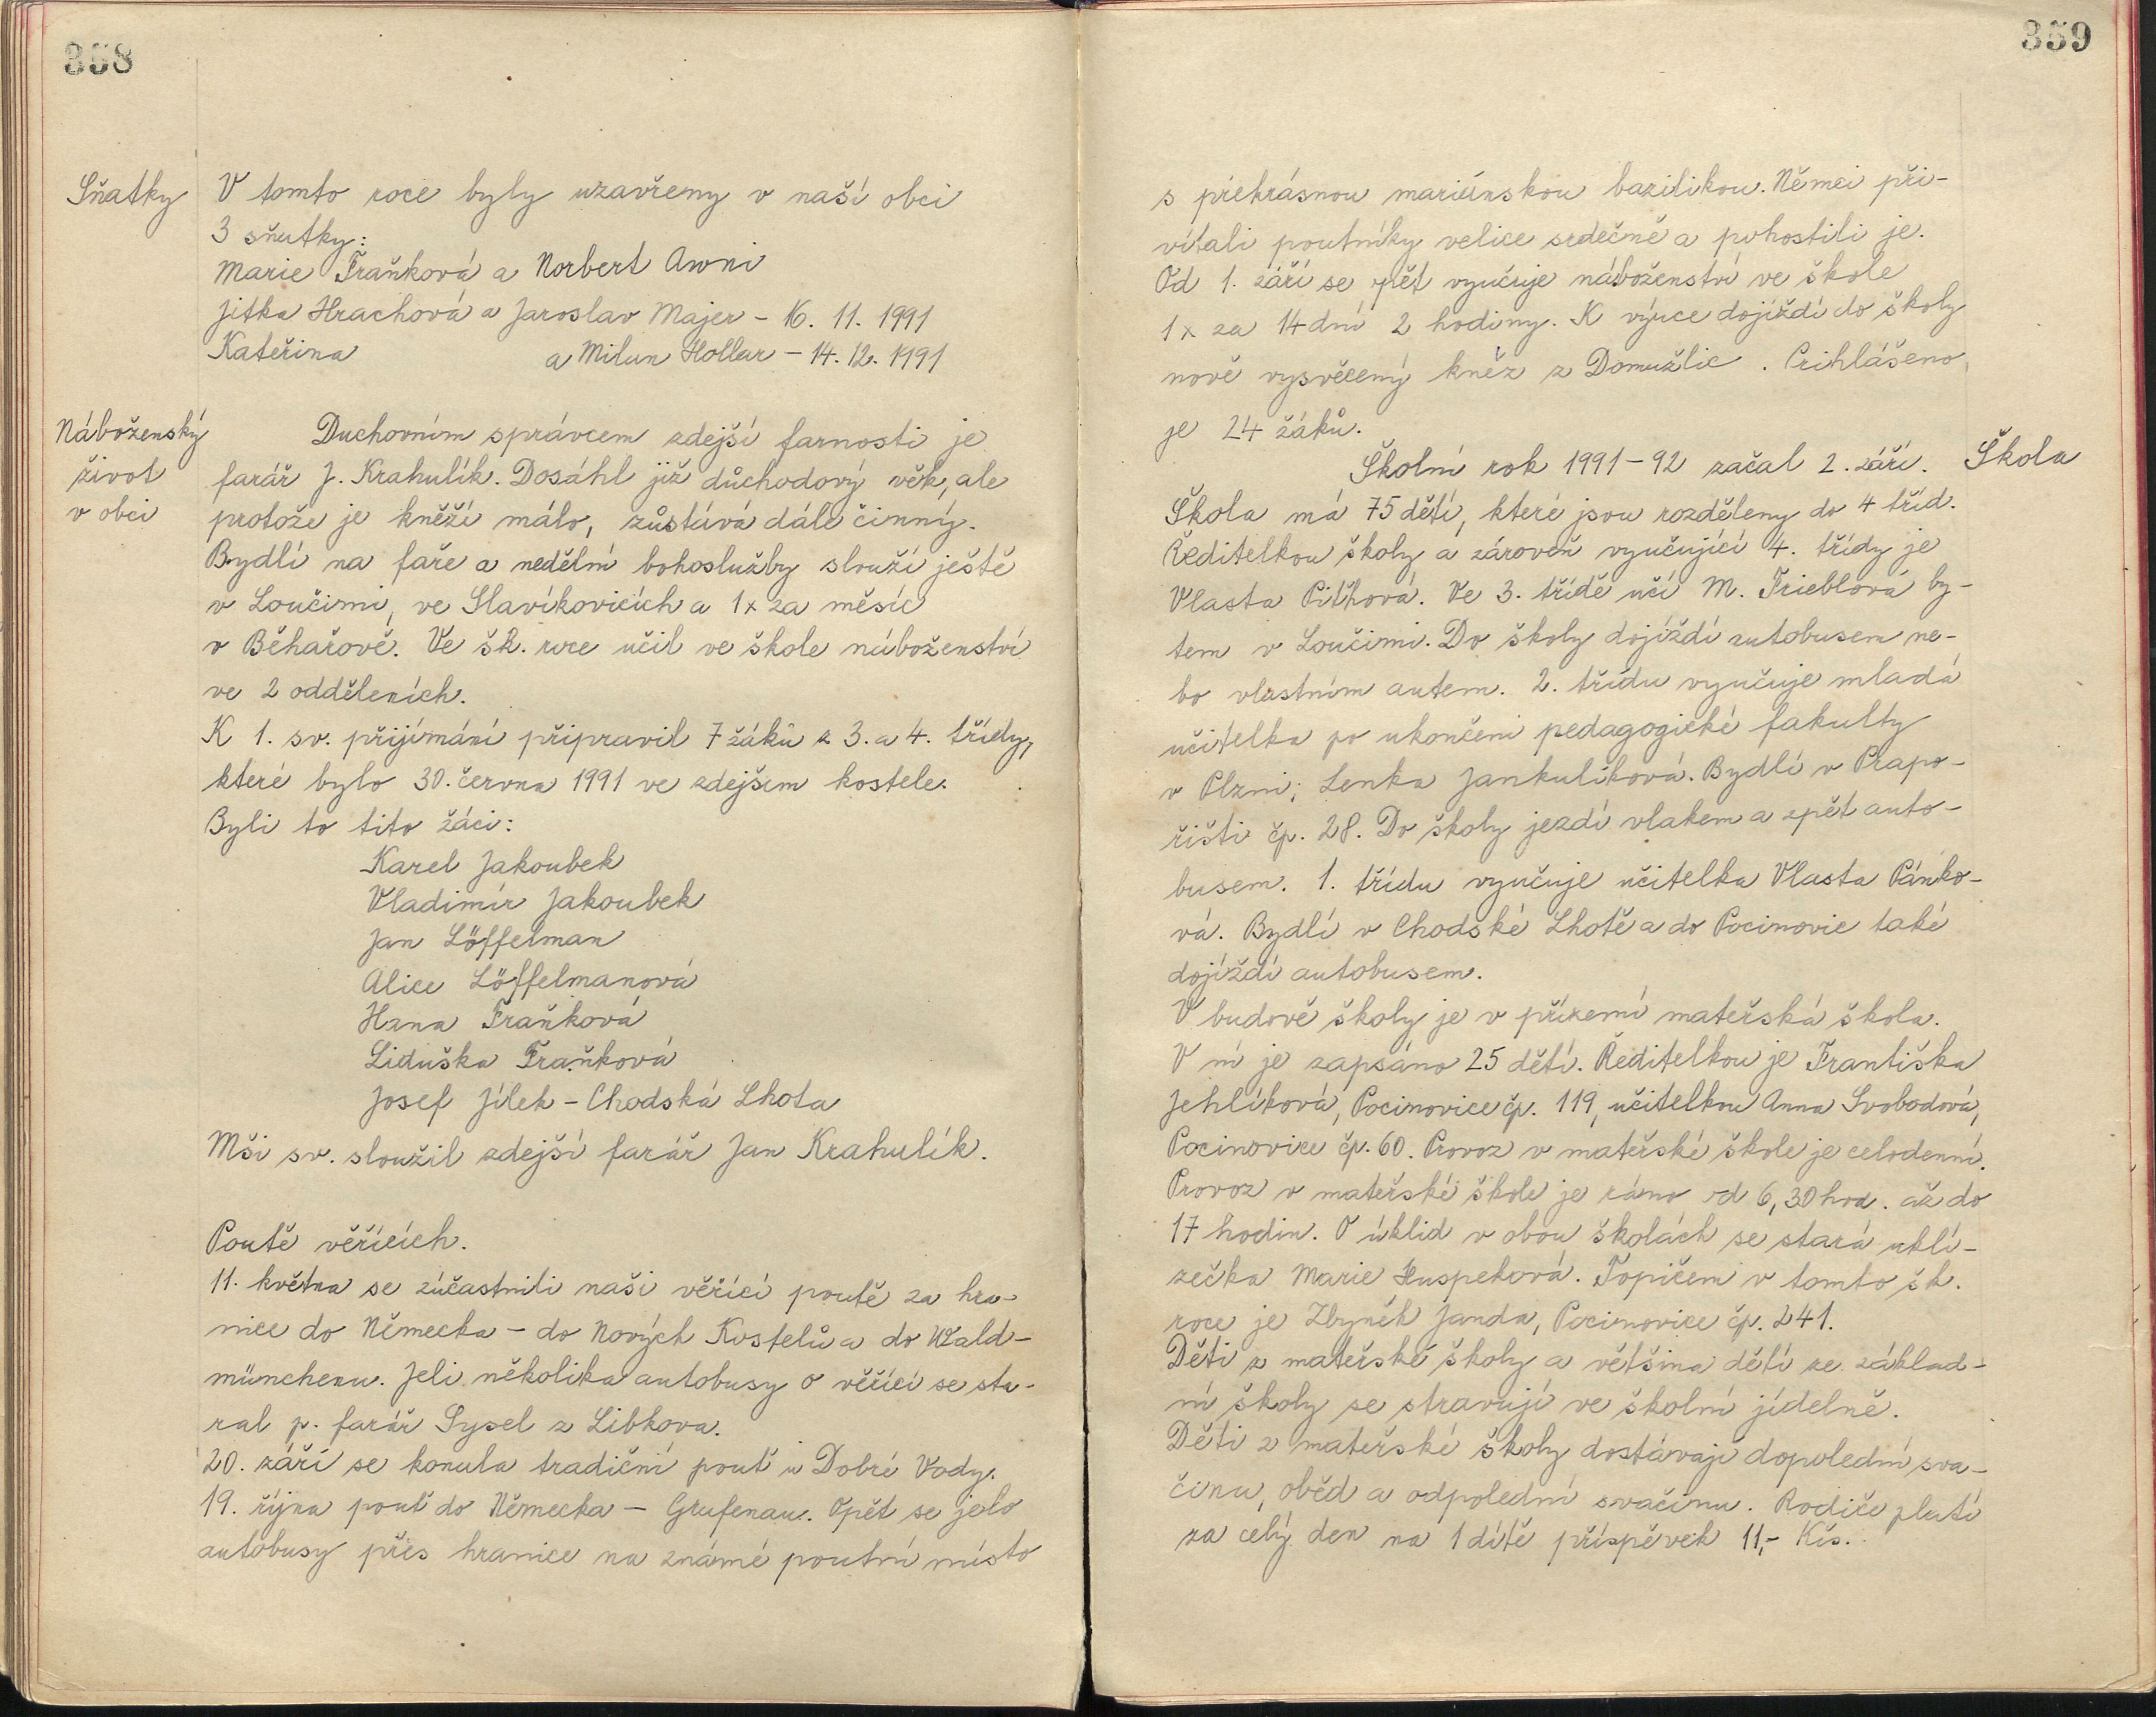 358
Sňatky
V tomto roce byly uzavřeny v naší obci
3 sňatky:
Marie Fraňková a Norbert Awni
Jitka Hrachová a Jaroslav Majer - 16. 11. 1991
Kateřina a Milan Hollar - 14. 12. 1991
Náboženský
život
v obci
Duchovním správcem zdejší farnosti je
farář J. Krahulík. Dosáhl již důchodový věk, ale
protože je kněží málo, zůstává dále činný.
Bydlí na faře a nedělní bohoslužby slouží ještě
v Loučimi, ve Slavíkovicích a 1x za měsíc
v Běhařově. Ve šk. roce učil ve škole náboženství
ve 2 odděleních.
K 1. sv. přijímání připravil 7 žáků z 3. a 4. třídy,
které bylo 30. června 1991 ve zdejším kostele.
Byli to tito žáci:
Karel Jakoubek
Vladimír Jakoubek
Jan Löffelman
Alice Löffelmanová
Hana Fraňková
Liduška Fraňková
Josef Jílek - Chodská Lhota
Mši sv. sloužil zdejší farář Jan Krahulík.
Poutě věřících.
11. května se zúčastnili naši věřící poutě za hra-
nice do Německa - do Nových Kostelů a do Wald-
münchenu. Jeli několika autobusy o věřící se sta-
ral p. farář Sysel z Libkova.
20. září se konala tradiční pouť u Dobré Vody.
19. října pouť do Německa - Grafenau. Opět se jelo
autobusy přes hranice na známé poutní místo
359
s překrásnou mariánskou bazilikou. Němci při-
vítali poutníky velice srdečně a pohostili je.
Od 1. září se opět vyučuje náboženství ve škole
1x za 14 dní 2 hodiny. K výuce dojíždí do školy
nově vysvěcený kněz z Domažlic. Prihlášeno
je 24 žáků.
Školní rok 1991-92 začal 2. září.
Škola
Škola má 75 dětí, které jsou rozděleny do 4 tříd.
Ředitelkou školy a zároveň vyučující 4. třídy je
Vlasta Pithová. Ve 3. třídě učí M. Trieblová by-
tem v Loučimi. Do školy dojíždí autobusem ne-
bo vlastním autem. 2. třídu vyučuje mladá
učitelka po ukončení pedagogické fakulty
v Plzni; Lenka Jankulíková. Bydlí v Prapo-
řišti čp. 28. Do školy jezdí vlakem a zpět auto-
busem. 1. třídu vyučuje učitelka Vlasta Pánko-
vá. Bydlí v Chodské Lhotě a do Pocinovic také
dojíždí autobusem.
V budově školy je v přízemí mateřská škola.
V ní je zapsáno 25 dětí. Ředitelkou je Františka
Jehlíková, Pocinovice čp. 119, učitelkou Anna Svobodová,
Pocinovice čp. 60. Provoz v mateřské škole je celodenní.
Provoz v mateřské škole je ráno od 6,30 hod. až do
17 hodin. O úklid v obou školách se stará uklí-
zečka Marie Huspeková. Topičem v tomto šk.
roce je Zbyněk Janda, Pocinovice čp. 241.
Děti z mateřské školy a většina dětí ze základ-
ní školy se stravují ve školní jídelně.
Děti z mateřské školy dostávají dopolední sva-
činu, oběd a odpolední svačinu. Rodiče platí
za celý den na 1 dítě příspěvek 11,- Kčs.